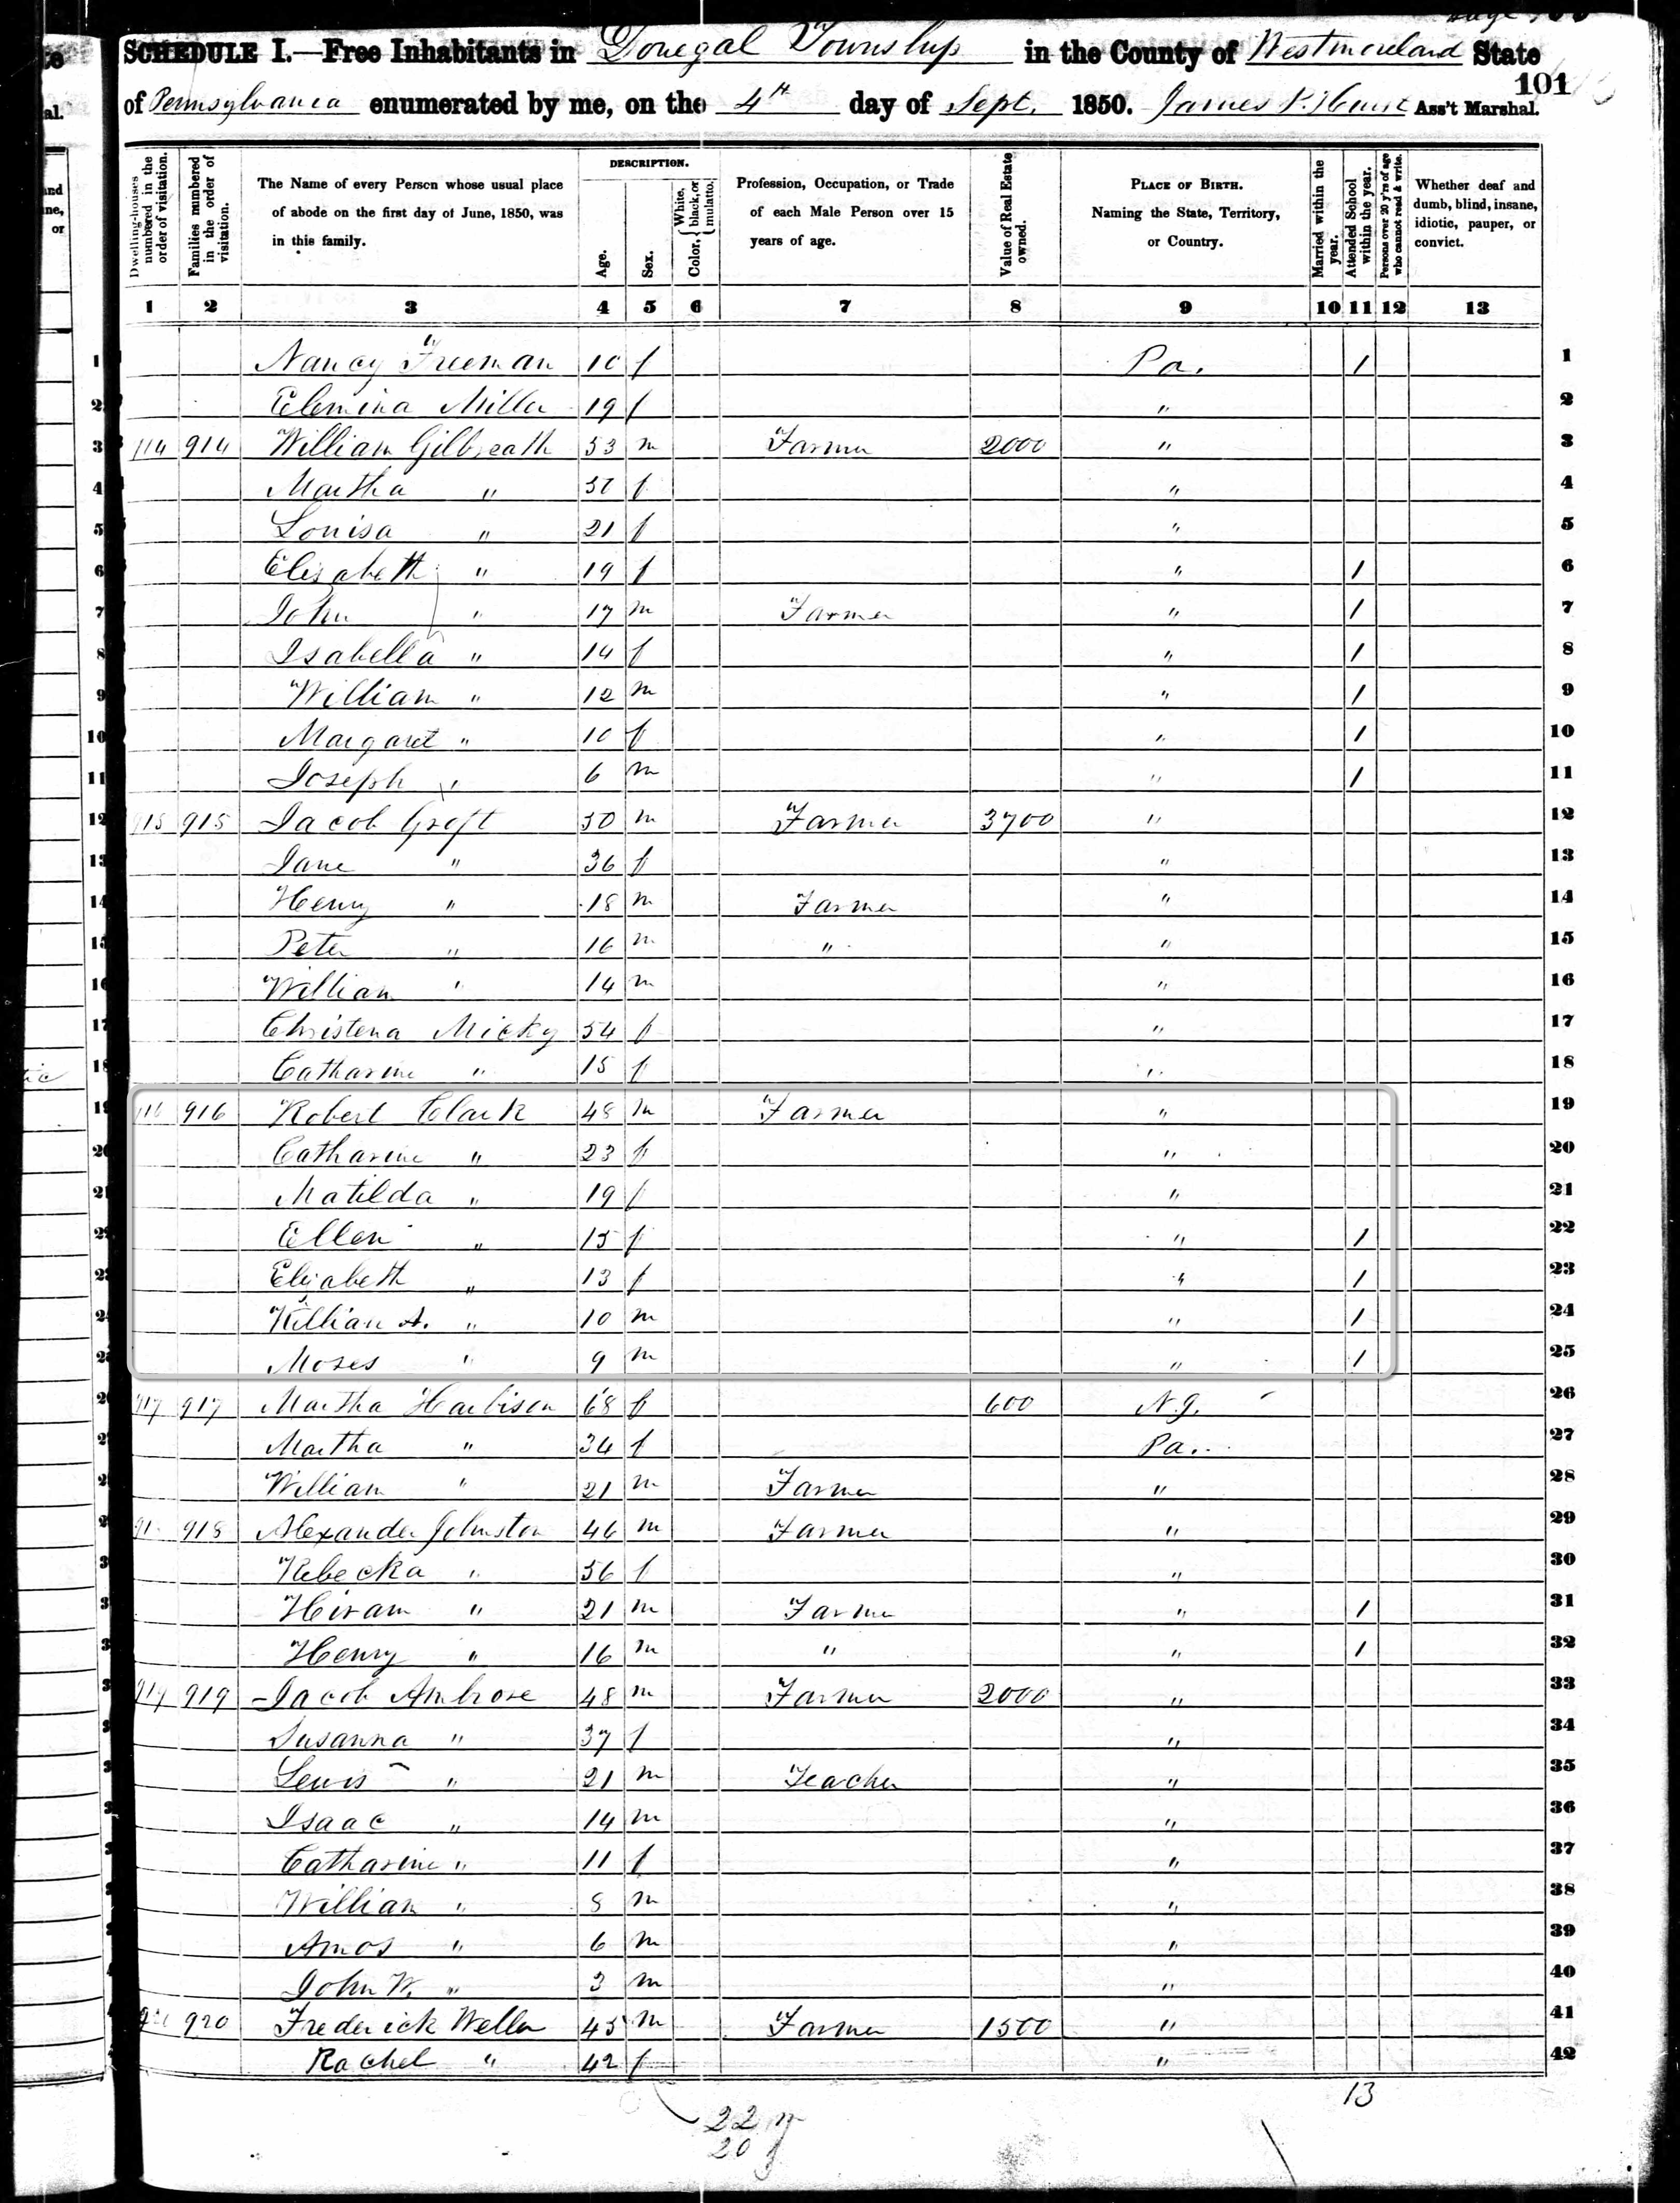 SCHEDULE I.—Free Inhabitants in Donegal Township in the County of Westmoreland State
101
of Pennsylvania enumerated by me, on the 4th day of Sept. 1850. James Ass't Marshal.
Dwelling-houses numbered in the order of visitation.
Families numbered in the order of visitation.
The Name of every Person whose usual place of abode on the first day of June, 1850, was in this family.
DESCRIPTION.
Age.
Sex.
Color, White, black, or mulatto.
Profession, Occupation, or Trade of each Male Person over 15 years of age.
Value of Real Estate owned.
PLACE OF BIRTH. Naming the State, Territory, or Country.
Married within the year.
Attended School within the year.
Persons over 20 y'rs of age who cannot read & write.
Whether deaf and dumb, blind, insane, idiotic, pauper, or convict.
1 2 3 4 5 6 7 8 9 10 11 12 13
1 Nancy Freeman 10 f Pa. 1 1
2 Elemina Miller 19 f " 2
3 914 William Gilbreath 53 m Farmer 2000 " 3
4 Martha " f " 4
5 Louisa " 21 f " 5
6 Elisabeth " 19 f " 1 6
7 John " 17 m Farmer " 1 7
8 Isabella " 14 f " 1 8
9 William " 12 m " 1 9
10 Margaret " 10 f " 1 10
11 Joseph " 6 m " 1 11
12 915 915 Jacob Groft 50 m Farmer 3700 " 12
13 Jane " 36 f " 13
14 Henry " 18 m Farmer " 14
15 Peter " 16 m " " 15
16 William " 14 m " 16
17 Christena Micky 54 f " 17
18 Catharine " 15 f " 18
19 916 Robert Clark 48 m Farmer " 19
20 Catharine " 23 f " 20
21 Matilda " 19 f " 21
22 Ellen " 15 f " 1 22
23 Elizabeth " 13 f " 1 23
24 William A. " 10 m " 1 24
25 Moses " 9 m " 1 25
917 917 Martha Harbison 68 f 600 N.J. 26
Martha " 34 f Pa. 27
William " 21 m Farmer " 28
918 Alexander Johnston 46 m Farmer " 29
Rebecka " 56 f " 30
Hiram " 21 m Farmer " 1 31
Henry " 16 m " " 1 32
919 919 Jacob Ambrose 48 m Farmer 2000 " 33
Susanna " 37 f " 34
Lewis " 21 m Teacher " 35
Isaac " 14 m " 36
Catharine " 11 f " 37
William " 8 m " 38
Amos " 6 m " 39
John W. " 3 m " 40
920 Frederick Weller 45 m Farmer 1500 " 41
Rachel " 42 f " 42
13
22 m
20 f